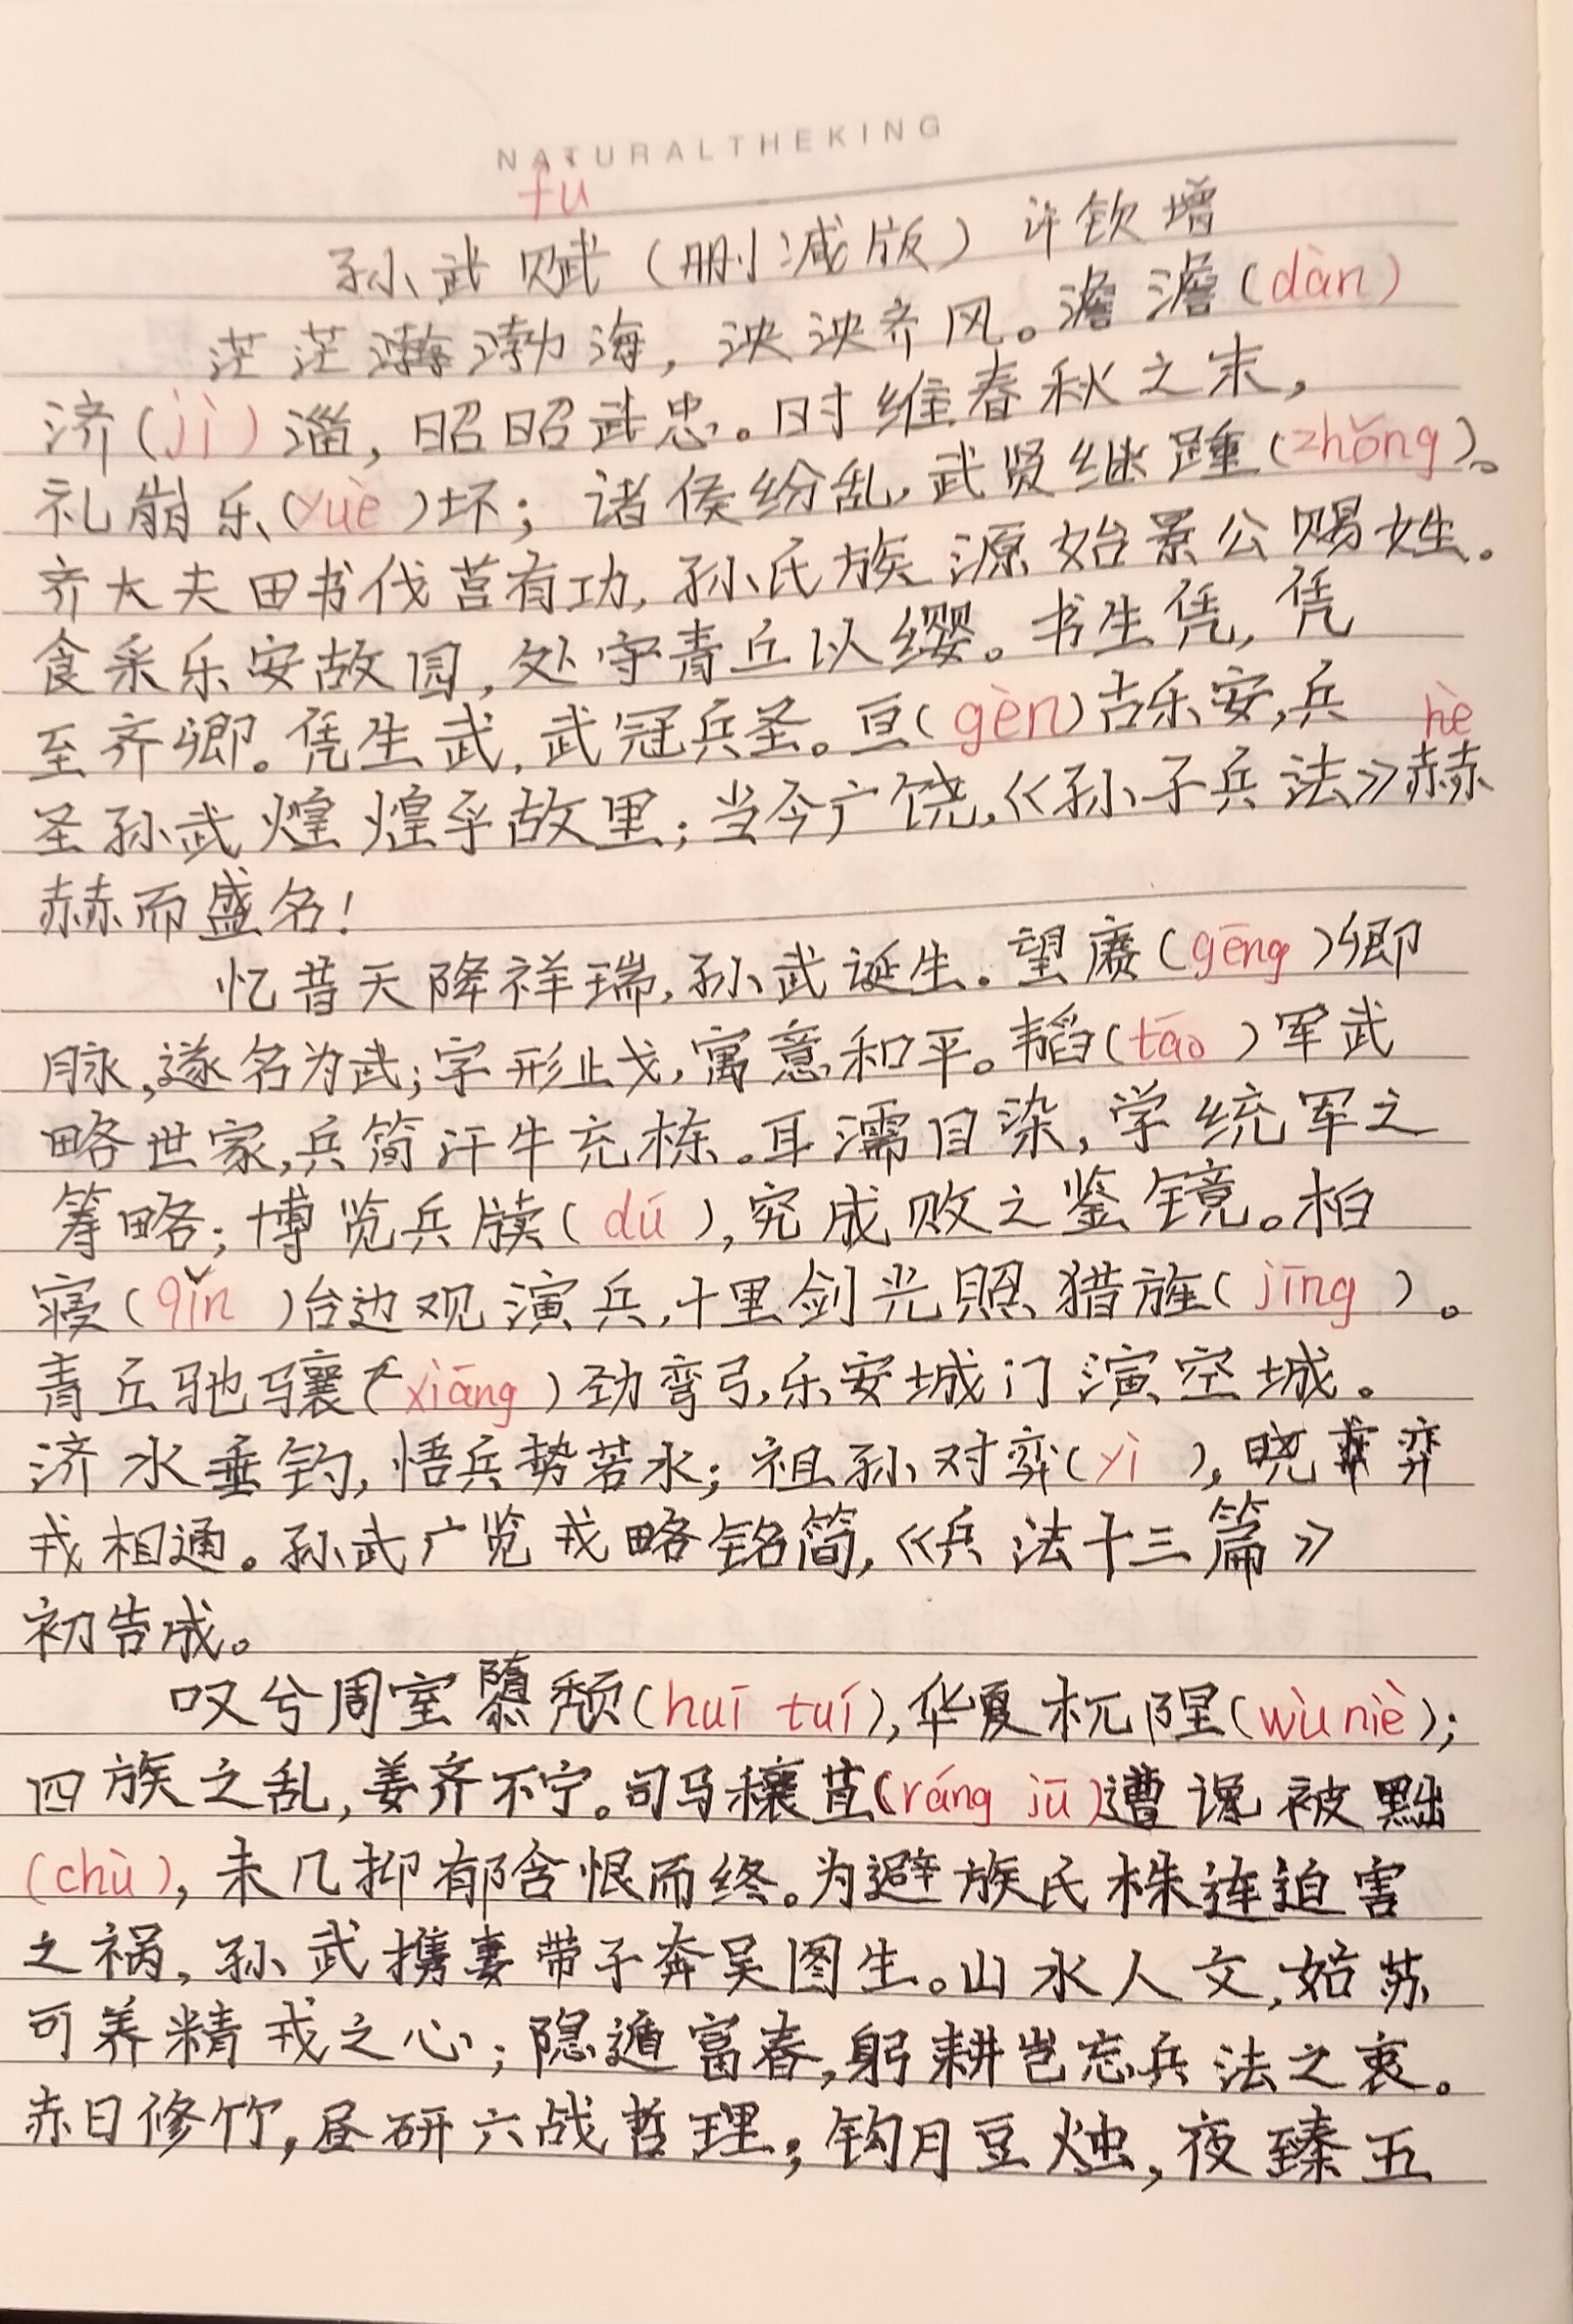 NATURALTHEKING
fù
孙武赋（删减版）许钦增
茫茫瀚渤海，泱泱齐风。澹澹(dàn)
济(jì)淄，昭昭武忠。时维春秋之末，
礼崩乐(yuè)坏；诸侯纷乱，武贤继踵(zhǒng)。
齐大夫田书伐莒有功，孙氏族源始景公赐姓。
食采乐安故园，处守青丘以缨。书生凭，凭
至齐卿。凭生武，武冠兵圣。亘(gèn)古乐安，兵
hè
圣孙武煌煌乎故里；当今广饶，《孙子兵法》赫
赫而盛名！
忆昔天降祥瑞，孙武诞生。望赓(gēng)卿
脉，遂名为武；字形止戈，寓意和平。韬(tāo)军武
略世家，兵简汗牛充栋。耳濡目染，学统军之
筹略；博览兵牍(dú)，究成败之鉴镜。柏
寝(qǐn)台边观演兵，十里剑光照猎旌(jīng)。
青丘驰骧(xiāng)劲弯弓，乐安城门演空城。
济水垂钓，悟兵势若水；祖孙对弈(yì)，晓弈
戎相通。孙武广览戎略铭简，《兵法十三篇》
初告成。
叹兮周室隳颓(huī tuí)，华夏杌陧(wù niè)；
四族之乱，姜齐不宁。司马穰苴(ráng jū)遭谗被黜
(chù)，未几抑郁含恨而终。为避族氏株连迫害
之祸，孙武携妻带子奔吴图生。山水人文，姑苏
可养精戎之心；隐遁富春，躬耕岂忘兵法之衷。
赤日修竹，昼研六战哲理；钩月豆烛，夜臻五